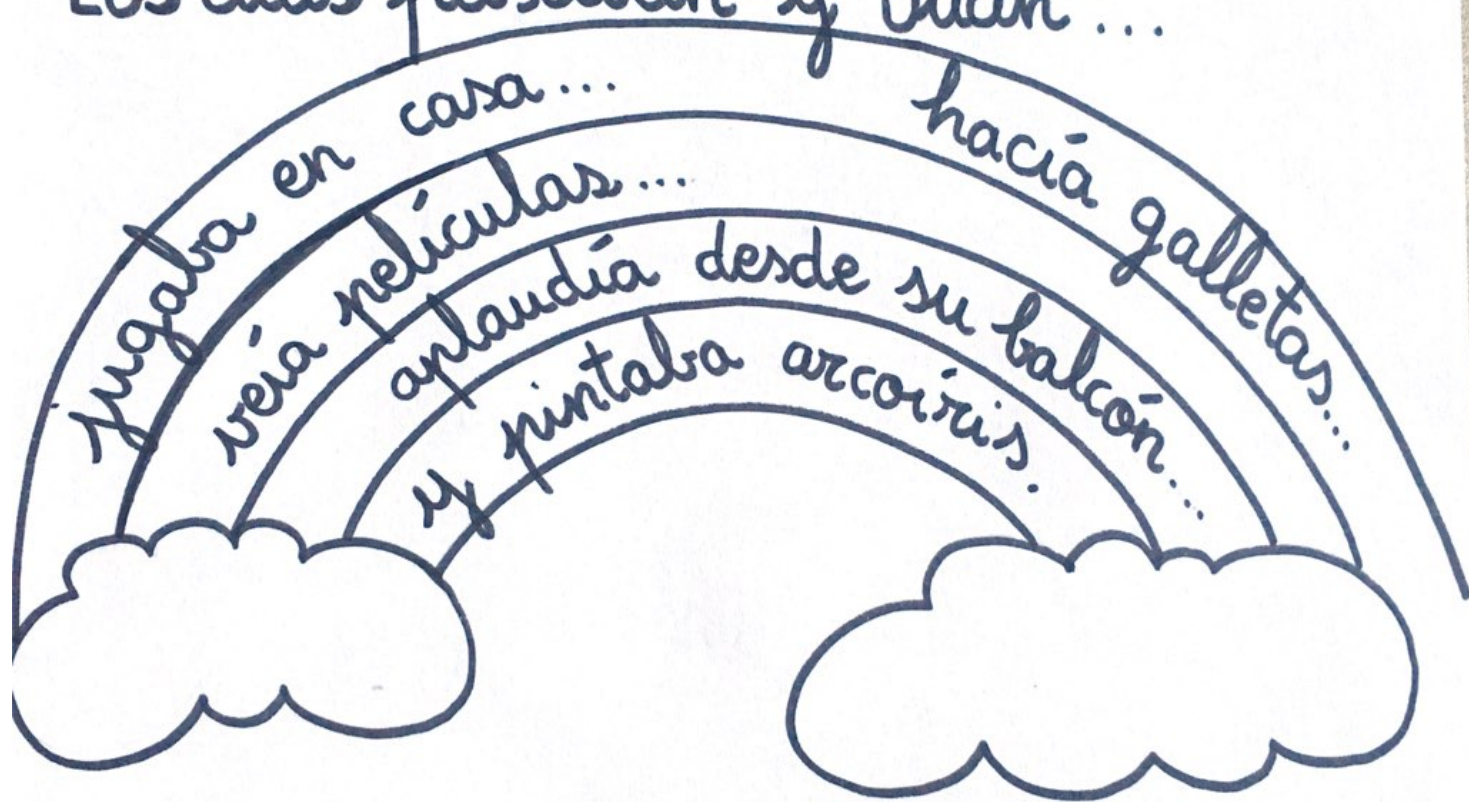 Los días pasaban y
jugaba en casa... hacía galletas...
veía películas...
aplaudía desde su balcón...
y pintaba arcoíris.